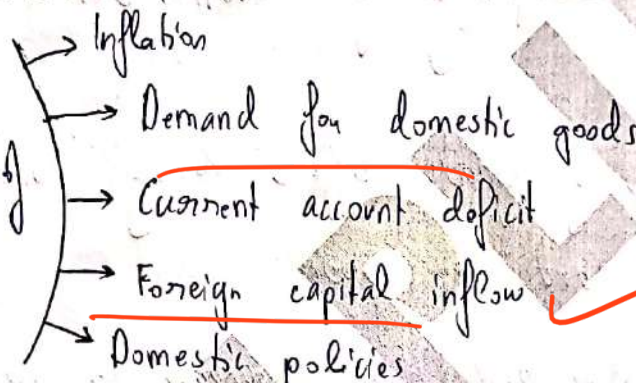 Inflation
Demand for domestic goods
Current account deficit
Foreign capital inflow
Domestic policies